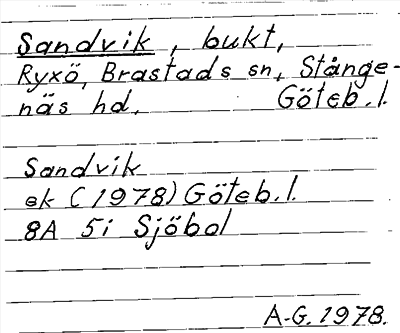 Sandvik, bukt,
Ryxö, Brastads sn, Stånge-
näs hd, Göteb. l.
Sandvik
ek (1978) Göteb. l.
8A 5i Sjöbol
A-G. 1978.